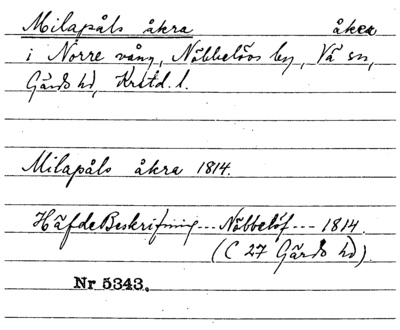 Milapåls åkra åkrar
i Norre vång, Näbbelövs by, Vä sn,
Gärds hd, Krstd. l.
Milapåls åkra 1814.
HäfdeBeskrifning --- Näbbelöf --- 1814.
(C 27 Gärds hd).
Nr 5343.